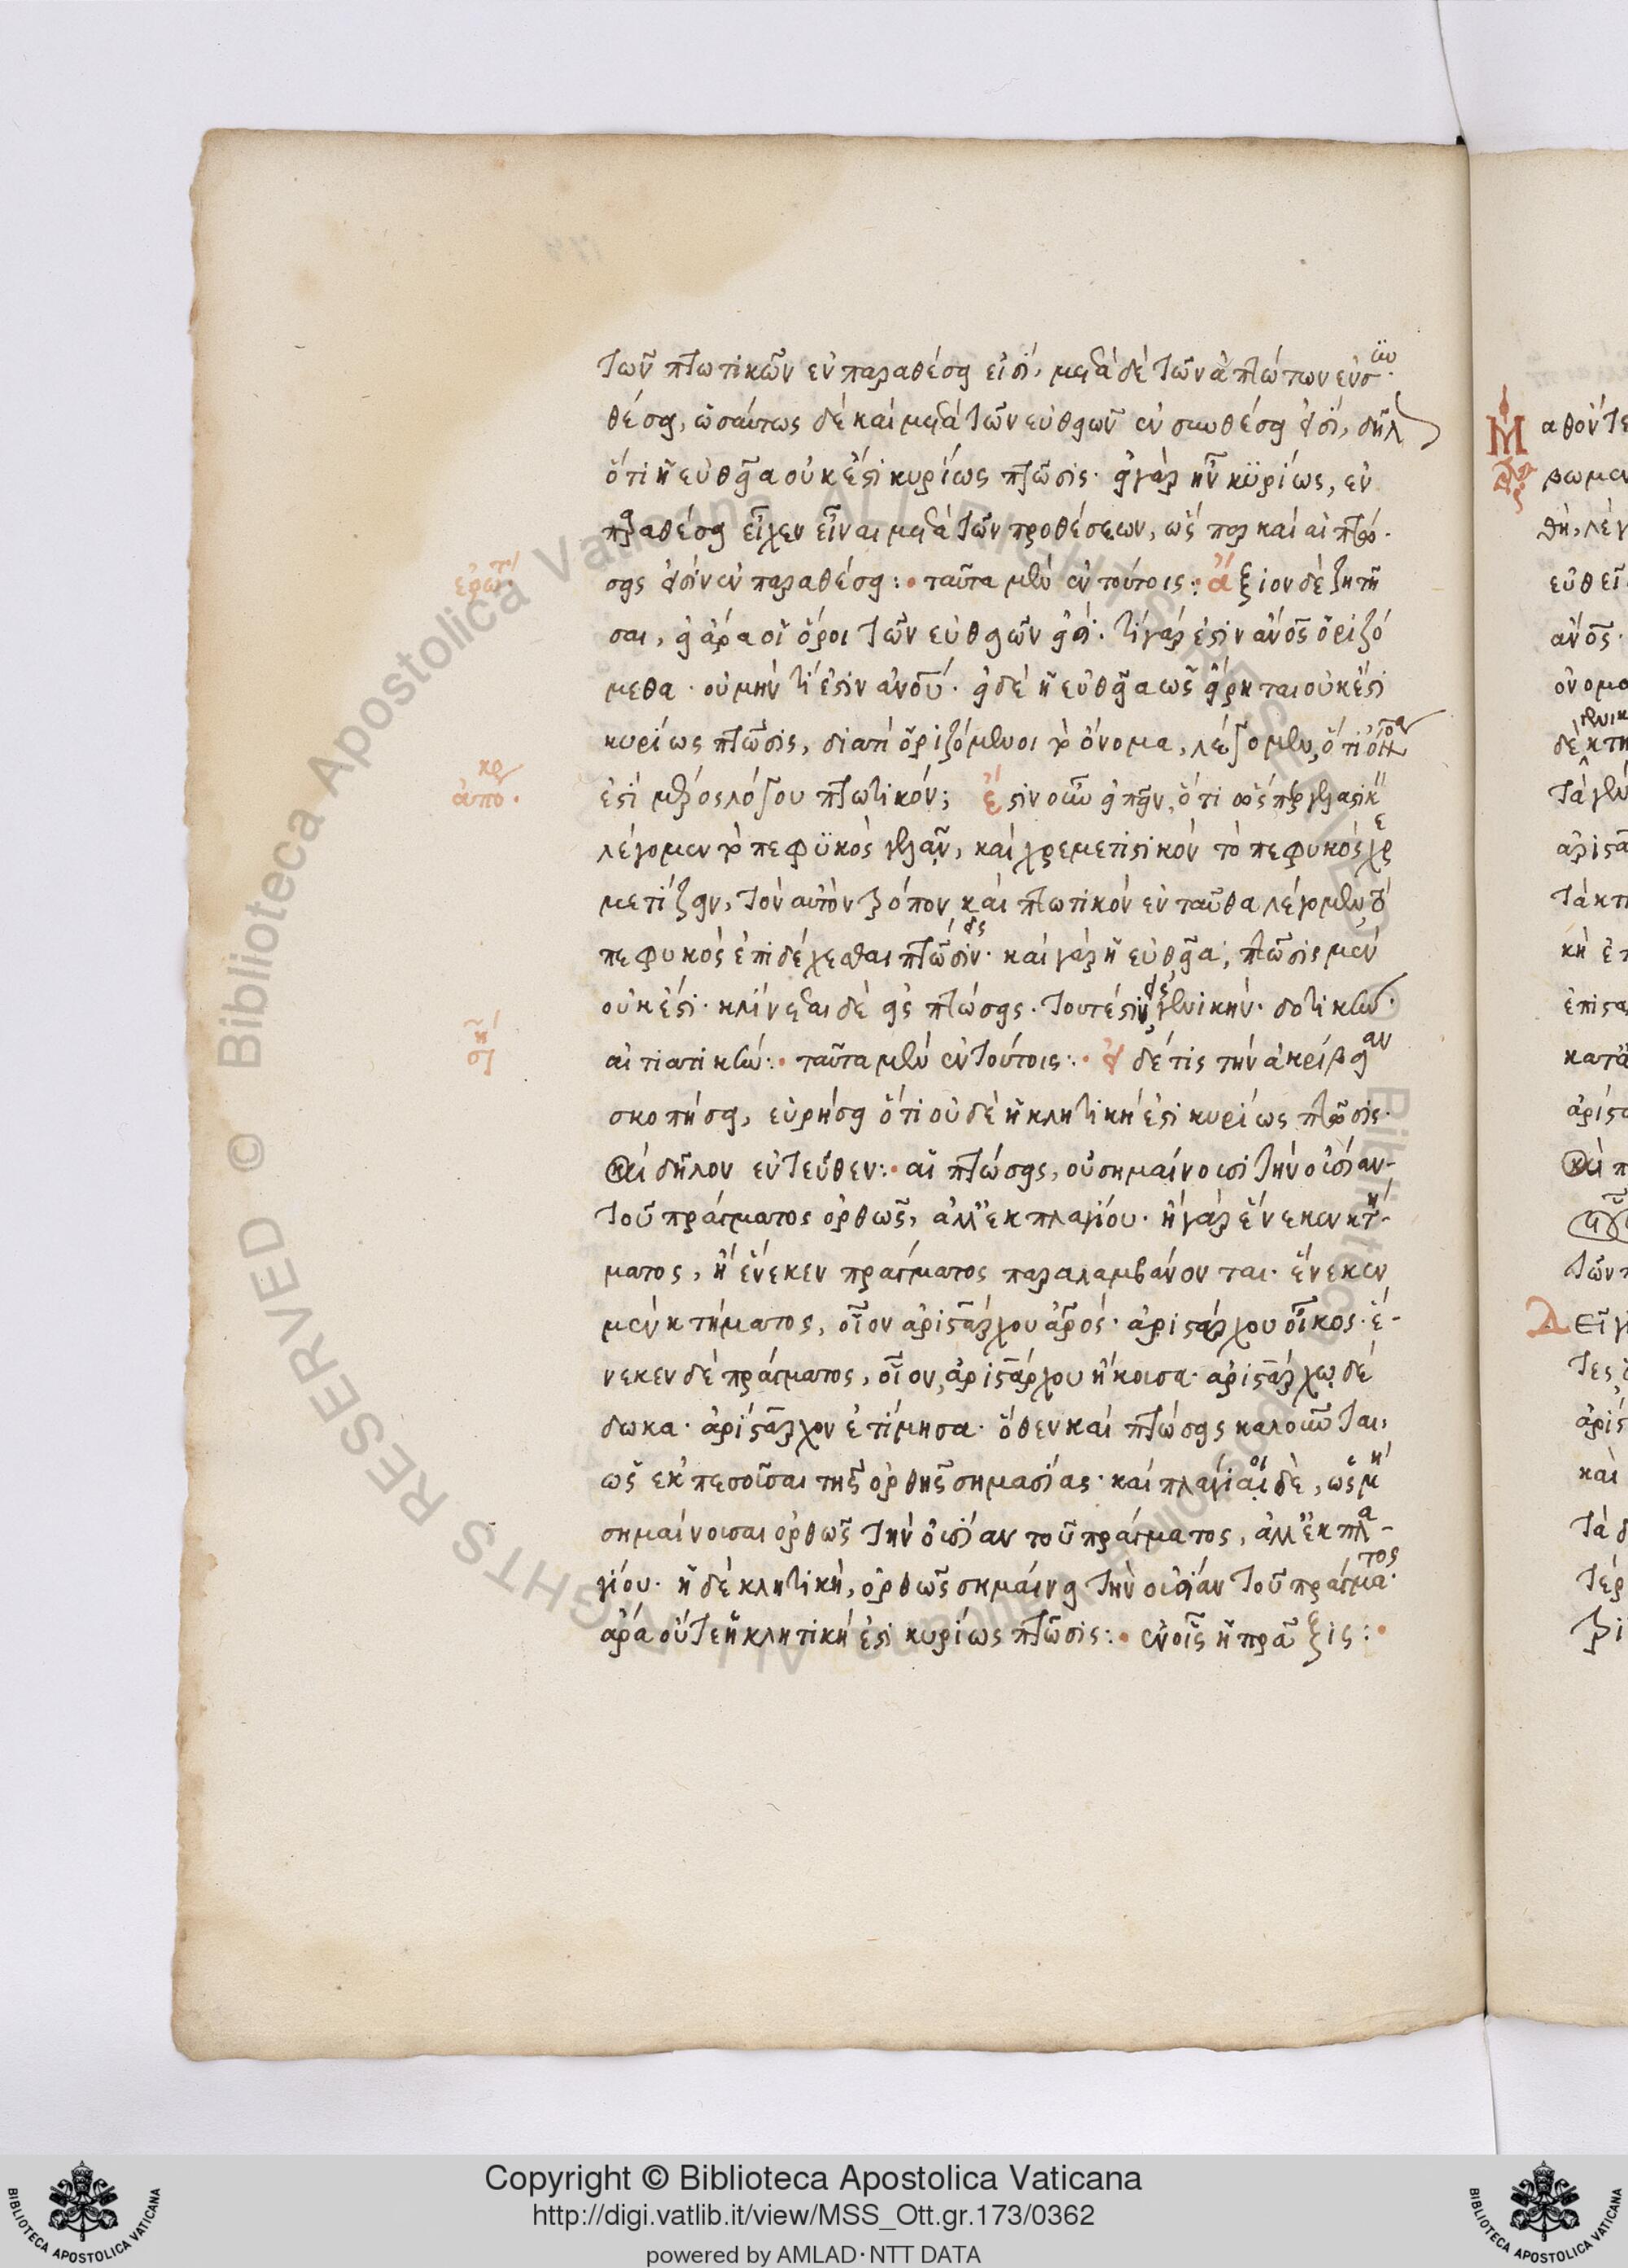 τῶν πτωτικῶν ἐν παραθέσει εἰσί, μετὰ δὲ τῶν ἀπτώτων ἐν συν
θέσει, ὡσαύτως δὲ καὶ μετὰ τῶν εὐθειῶν ἐν συνθέσει εἰσί, δῆλ
ὅτι ἡ εὐθεῖα οὐκ ἔστι κυρίως πτῶσις. εἰ γὰρ ἦν κυρίως, ἐν
παραθέσει εἶχεν εἶναι μετὰ τῶν προθέσεων, ὥσπερ καὶ αἱ πτώ
σεις εἰσὶν ἐν παραθέσει:· ταῦτα μὲν ἐν τούτοις:· ἄξιον δὲ ζητῆ
ἐρώτ
σαι, εἰ ἄρα οἱ ὅροι τῶν εὐθειῶν εἰσί. τί γάρ ἐστιν ἄνος ὁριζό
μεθα. οὐ μὴν τί ἐστιν ἀνου. εἰ δὲ ἡ εὐθεῖα ὡς εἴρηται οὐκ ἔστι
κυρίως πτῶσις, διατί ὁριζόμενοι τὸ ὄνομα, λέγομεν, ὅτι ὄνομα
ἀπόκρ
ἐστὶ μέρος λόγου πτωτικόν; ἔστιν οὖν εἰπεῖν, ὅτι ὥσπερ γελαστικ
λέγομεν τὸ πεφυκὸς γελᾶν, καὶ χρεμετιστικὸν τὸ πεφυκὸς χρε
μετίζειν, τὸν αὐτὸν τρόπον καὶ πτωτικὸν ἐνταῦθα λέγομεν τὸ
πεφυκὸς ἐπιδέχεσθαι πτῶσιν. καὶ γὰρ ἡ εὐθεῖα, πτῶσις μὲν
οὐκ ἔστι. κλίνεται δὲ εἰς πτώσεις. τουτέστιν εἰς γενικήν. δοτικήν.
αἰτιατικήν:· ταῦτα μὲν ἐν τούτοις:· εἰ δέ τις τὴν ἀκρίβειαν
ση
σκοπήσει, εὑρήσει ὅτι οὐδὲ ἡ κλητική ἐστι κυρίως πτῶσις.
καὶ δῆλον ἐντεῦθεν:· αἱ πτώσεις, οὐ σημαίνουσι τὴν οὐσίαν
τοῦ πράγματος ὀρθῶς, ἀλλ' ἐκ πλαγίου. ἢ γὰρ ἕνεκεν κτή
ματος, ἢ ἕνεκεν πράγματος παραλαμβάνονται. ἕνεκεν
μὲν κτήματος, οἷον ἀριστάρχου ἀγρός. ἀριστάρχου οἶκος. ἕ-
νεκεν δὲ πράγματος, οἷον, ἀριστάρχου ἤκουσα. ἀριστάρχῳ δέ
δωκα. ἀρίσταρχον ἐτίμησα. ὅθεν καὶ πτώσεις καλοῦνται,
ὡς ἐκπεσοῦσαι τῆς ὀρθῆς σημασίας. καὶ πλάγιαι δὲ, ὡς μὴ
σημαίνουσαι ὀρθῶς τὴν οὐσίαν τοῦ πράγματος, ἀλλ' ἐκ πλα-
γίου. ἡ δὲ κλητικὴ, ὀρθῶς σημαίνει τὴν οὐσίαν τοῦ πράγματος.
ἄρα οὔτε ἡ κλητική ἐστι κυρίως πτῶσις:· ἐν οἷς ἡ πρᾶξις:·
Copyright © Biblioteca Apostolica Vaticana
http://digi.vatlib.it/view/MSS_Ott.gr.173/0362
powered by AMLAD·NTT DATA